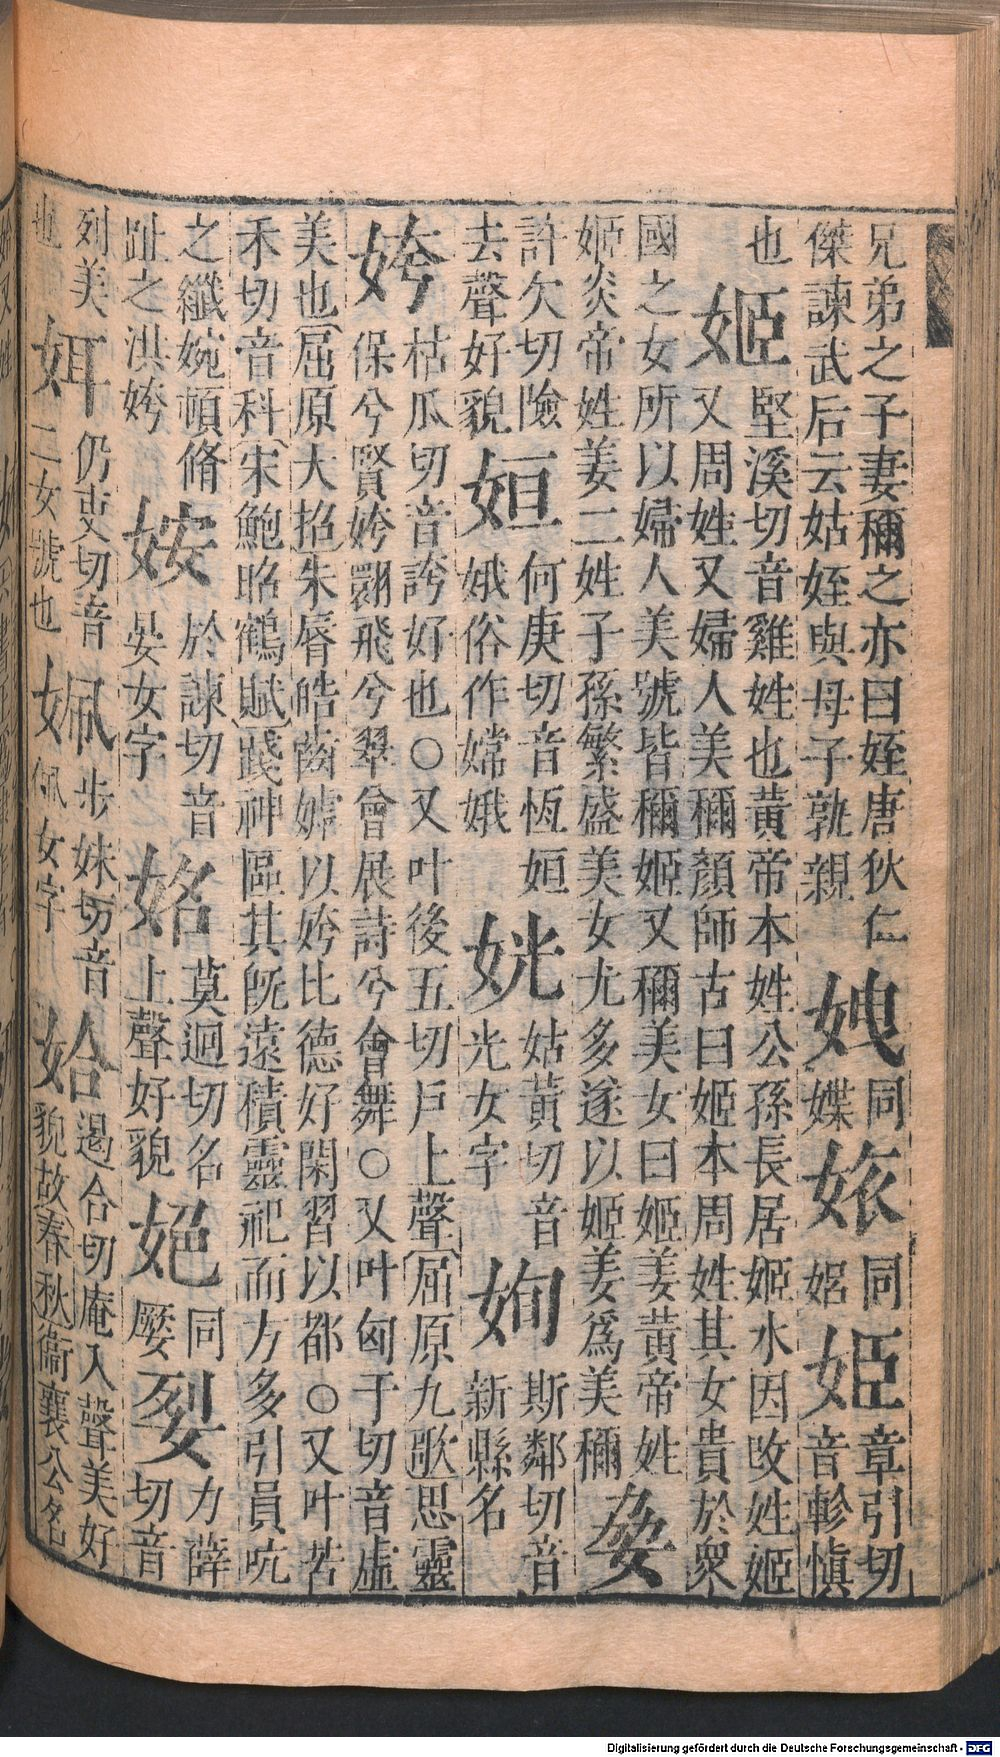 兄弟之子妻稱之亦曰姪唐狄仁傑諫武后云姑姪與母子孰親 同媟 同 姫 章引切音軫愼
也 姬 堅溪切音雞姓也黃帝本姓公孫長居姬水因改姓姬又周姓又婦人美稱顏師古曰姬本周姓其女貴於衆
國之女所以婦人美號皆稱姬又稱美女曰姬姜黃帝姓姬炎帝姓姜二姓子孫繁盛美女尤多遂以姬姜爲美稱
許欠切險去聲好貌 姮 何庚切音恆姮娥俗作嫦娥 姯 姑黃切音光女字 姰 斯鄰切音新縣名
姱 枯瓜切音誇好也○又叶後五切戶上聲(屈原九歌思靈保兮賢姱翾飛兮翠曾展詩兮會舞○又叶匈于切音虛
美也(屈原大招)朱脣皓齒嫭以姱比德好閑習以都○又叶苦禾切音科(宋鮑昭鶴賦)踐神區其旣遠積靈祀而方多引員吭
之纖婉頓脩趾之洪姱 姲 於諫切音晏女字 姳 莫迥切名上聲好貌 同嬮 力薛切音
列美也 㛅 仍吏切音二女號也 姵 步妹切音佩女字 姶 遏合切庵入聲美好貌故(春秋衞襄公名
Digitalisierung gefördert durch die Deutsche Forschungsgemeinschaft - DFG